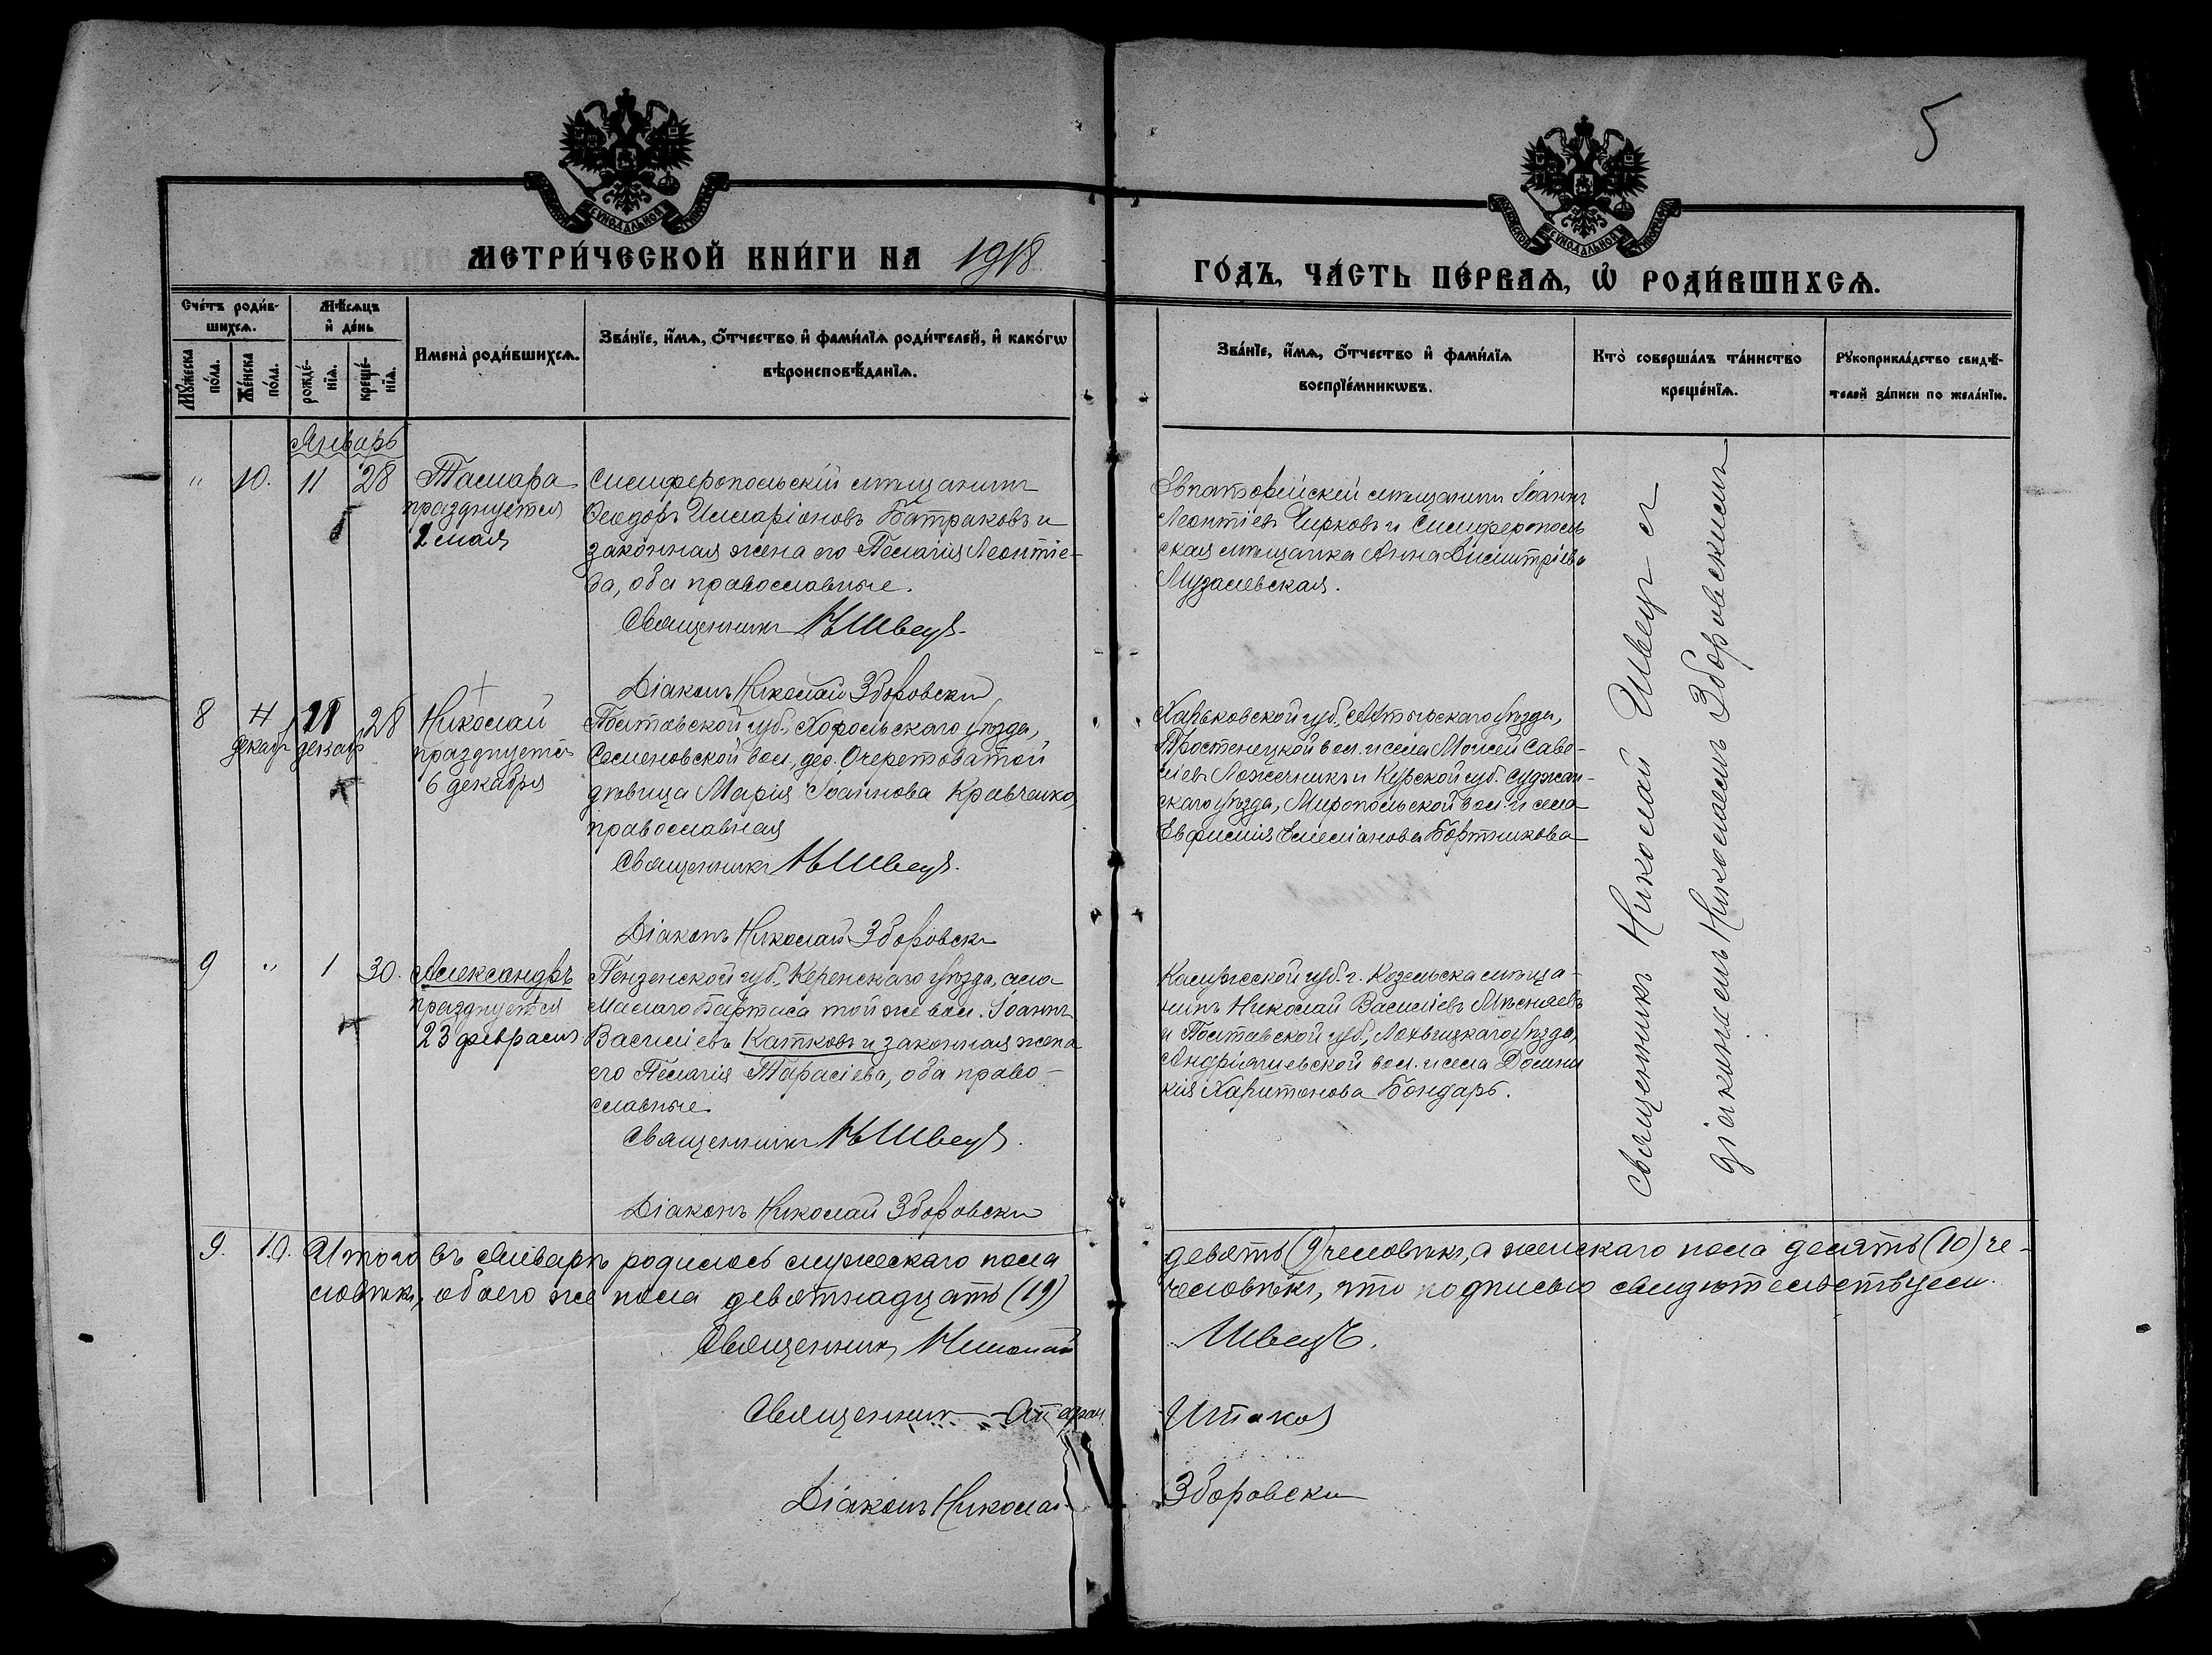 5
МЕТРИ́ЧЕСКОЙ КНИ́ГИ НА 1918
ГО́ДЪ, ЧА́СТЬ ПЕ́РВАѦ, Ѿ РОДИ́ВШИХСѦ.
Сче́тъ роди́в-
шихсѧ.
Мѣ́сѧцъ
и҆ де́нь
Мꙋ́жеска
по́ла.
Же́нска
по́ла.
рожде́-
нїѧ.
креще́-
нїѧ.
Имена̀ роди́вшихсѧ.
Зва́нїе, и҆́мѧ, ѻ҆́тчество и҆ фами́лїѧ роди́телей, и҆ како́гѡ
вѣроисповѣ́данїѧ.
Зва́нїе, и҆́мѧ, ѻ҆́тчество и҆ фами́лїѧ
воспрїе́мникѡвъ.
Кто̀ соверша́лъ та́инство
креще́нїѧ.
Рꙋкоприкла́дство свидѣ́-
телей за́писи по жела́нїю.
Январь
" 10. 11 28
Тамара
празднуется
1 мая
Симферопольскій мѣщанинъ
Ѳеодоръ Илларіоновъ Батраковъ и
законная жена его Пелагія Леонтіе-
ва, оба православные.
Священникъ Н Швецъ.
Діаконъ Николай Зборовскі
Евпаторійскій мѣщанинъ Іоаннъ
Леонтіевъ Чирковъ и Симферополь
ская мѣщанка Анна Димитріева
8 11 28
декабр
Николай
празднуется
6 декабря
Полтавской губ., Хорольскаго уѣзда,
Семеновской вол., дер. Очеретоватой
дѣвица Марія Іоаннова Кравченко,
православная
Священникъ Н Швецъ.
Діаконъ Николай Зборовскі
Харьковской губ., Ахтырскаго уѣзда,
Тростенецкой вол. и села Моисей Саво-
ліевъ Ложечникъ и Курской губ. Суджан-
скаго уѣзда, Миропольской вол. и села
Евфимія Емеліанова Бортникова
9 " 1 30.
Александръ
празднуется
23 февраля
Пензенской губ., Керенскаго уѣзда, села
Малаго Бартаса той же вол. Іоаннъ
Василіевъ Катковъ и законная жена
его Пелагія Тарасіева, оба право-
славные
Священникъ Н Швецъ.
Діаконъ Николай Зборовскі
Калужской губ. г. Козельска мѣща-
нинъ Николай Василіевъ Мѣсняевъ
и Полтавской губ., Лохвицкаго уѣзда,
Андріяшевской вол. и села Домни
кія Харитонова Бондарь.
Священникъ Николай Швецъ съ
діакономъ Николаемъ Зборовскимъ
9. 10. Итого въ Январѣ родилось мужескаго пола
девять (9) человѣкъ, а женскаго пола десять (10) че-
ловѣкъ, обоего же пола девятнадцать (19)
человѣкъ, что подписью свидѣтельствуемъ.
Священникъ Николай
Швецъ.
Священник
Діаконъ Николай
Зборовскі